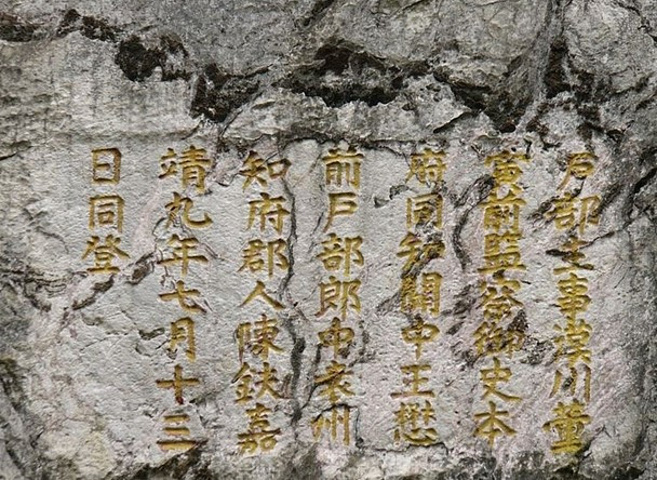 戶部主事漢川董
前監察御史本
府同知關中王懋
前戶部郎中袁州
知府郡人陳鈇嘉
靖九年七月十三
日同登